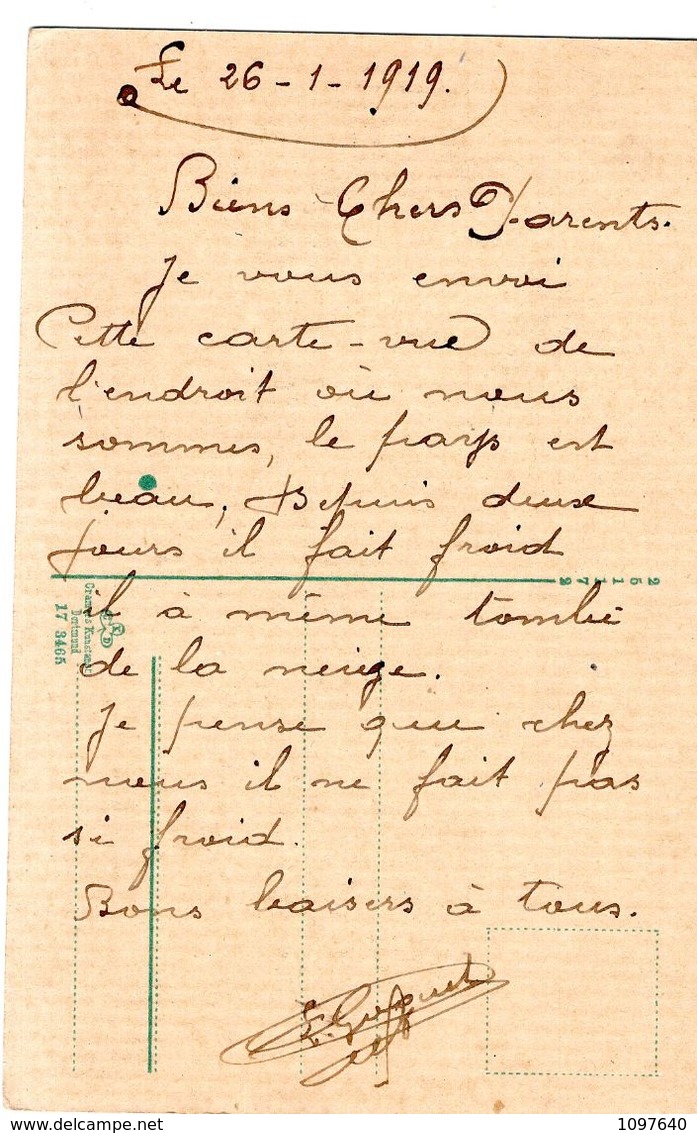 Le 26-1-1919.
Biens Chers Parents.
Je vous envoi
Cette carte-vue de
l'endroit où nous
sommes, le pays est
beau, Depuis deux
jours il fait froid
271152
il à même tombé
Dortmund
17 3465
de la neige.
Je pense que chez
nous il ne fait pas
si froid.
Bons baisers à tous.
www.delcampe.net
1097640